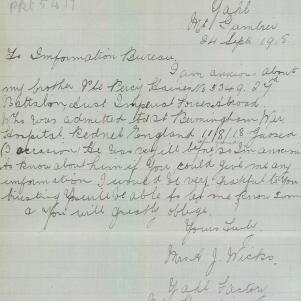 pkt 5417
Yahl
Mt Gambier
24 Sept 1918
To Information Bureau
I am anxious about
my brother Pte Percy Haines No 3349. 27
Battalion Aust Imperial Forces Abroad
Who was admitted to 1st Birmingham War
Hospital Rednel England 11/8/18 Gassed
occasion He was
to know about him if You could give me any
information I would be very grateful to You
trusting You will be able to let me know soon
a You will greatly oblige.
Yours Truly
Mrs A J Wicks
Yahl Factory